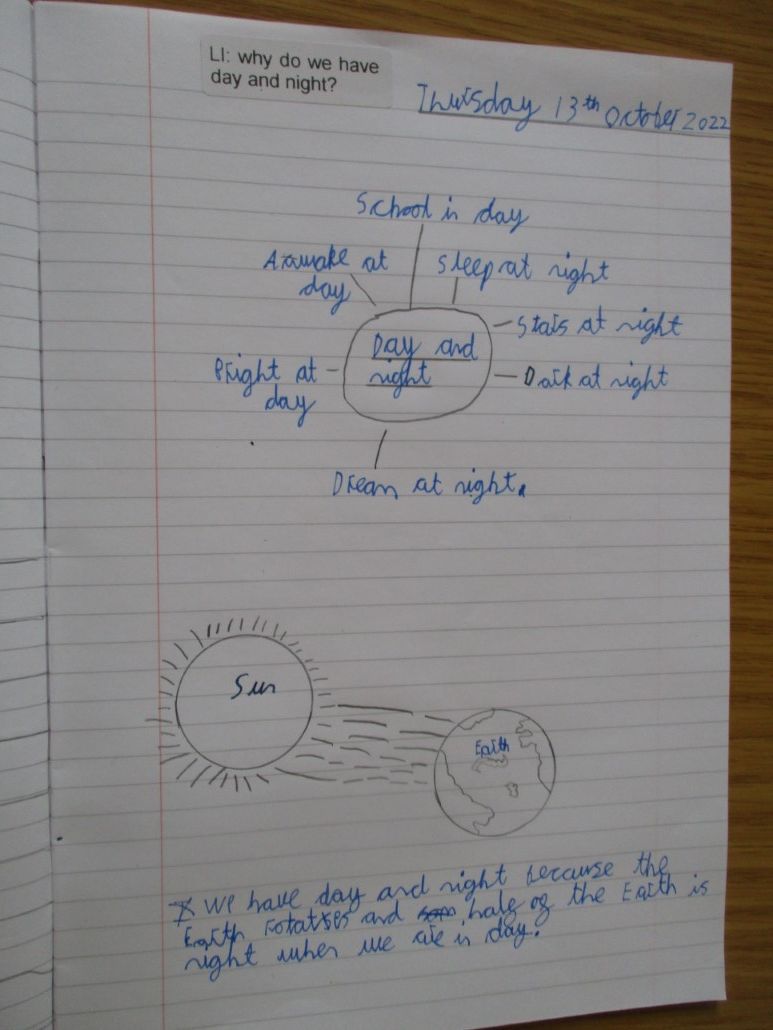 LI: why do we have
day and night?
Thursday 13th October 2022
School in day
Awake at
day
Sleep at night
Stars at night
Day and
night
Bright at
day
Dark at night
Dream at night.
Sun
Earth
* We have day and night because the
Earth rotatses and half of the Earth is
night when we are in day.